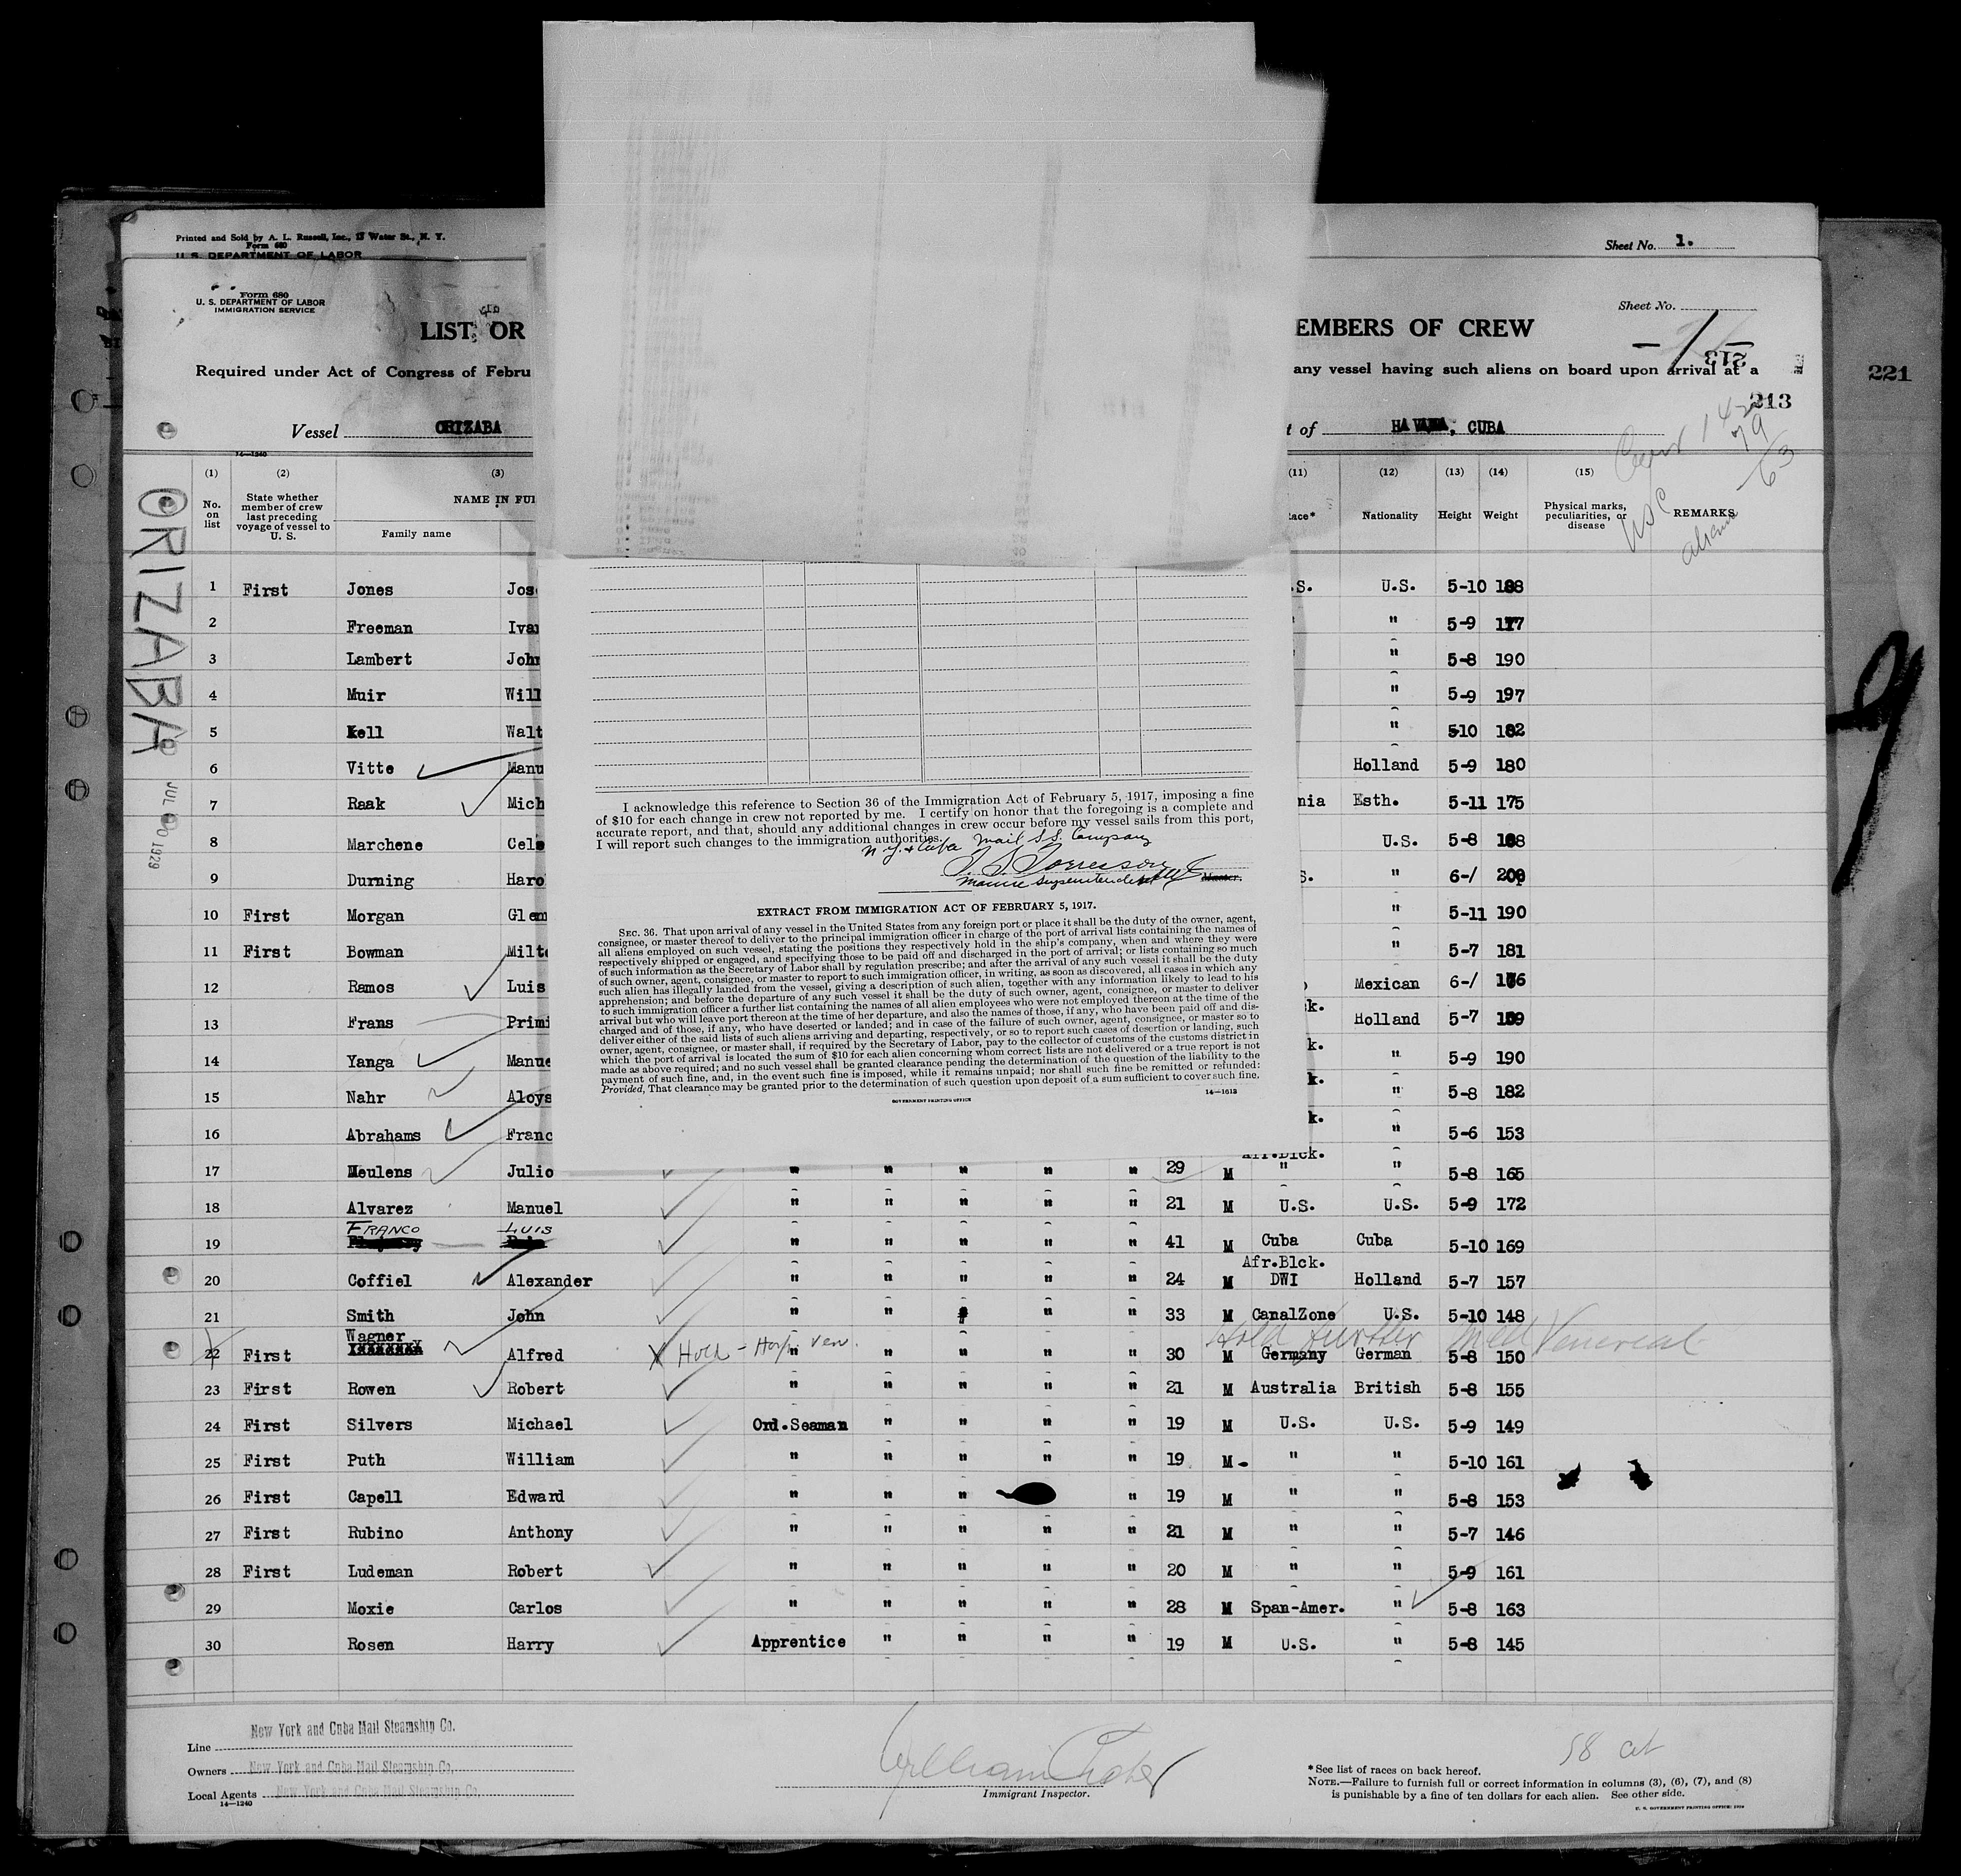 Printed and Sold by A. L. Russell, Inc., 15 Water St., N. Y.
Form 680
U. S. DEPARTMENT OF LABOR
Sheet No. 1.
Form 680
U. S. DEPARTMENT OF LABOR
IMMIGRATION SERVICE
Sheet No.
LIST OR
EMBERS OF CREW
213
Required under Act of Congress of Febru
any vessel having such aliens on board upon arrival at a
221
213
Vessel ORIZABA
t of HAVANA, CUBA
14—1240
(1) (2) (3) (11) (12) (13) (14) (15)
No. on list
State whether member of crew last preceding voyage of vessel to U. S.
NAME IN FUL
Family name
Race*
Nationality
Height
Weight
Physical marks, peculiarities, or disease
REMARKS
USC
aliens
63
ORIZABA
1929
1 First Jones Jos .S. U.S. 5-10
2 Freeman Iva " 5-9
3 Lambert John " 5-8 190
4 Muir Will " 5-9 197
5 Kell Walt " 5-10 182
6 Vitte Manu Holland 5-9 180
7 Raak Mich nia Esth. 5-11 175
8 Marchene Cele U.S. 5-8
9 Durning Haro S. " 6-/
10 First Morgan Glen " 5-11 190
11 First Bowman Milt " 5-7 181
12 Ramos Luis Mexican 6-/
13 Frans Primi k. Holland 5-7
14 Yanga Manue k. " 5-9 190
15 Nahr Aloys k. " 5-8 182
16 Abrahams Franc k. " 5-6 153
17 Meulens Julio " " " " " 29 M Afr.Blck. " " 5-8 165
18 Alvarez Manuel " " " " " 21 M U.S. U.S. 5-9 172
FRANCO LUIS
19 " " " " " 41 M Cuba Cuba 5-10 169
20 Coffiel Alexander " " " " " 24 M Afr.Blck. DWI Holland 5-7 157
21 Smith John " " " " 33 M CanalZone U.S. 5-10 148
Wagner
22 First Alfred X Hold - Hosp. Ven. " " " " " 30 M Germany German 5-8 150
Hold further Venereal
23 First Rowen Robert " " " " " 21 M Australia British 5-8 155
24 First Silvers Michael Ord.Seaman " " " " 19 M U.S. U.S. 5-9 149
25 First Puth William " " " " " 19 M " " 5-10 161
26 First Capell Edward " " " " 19 M " " 5-8 153
27 First Rubino Anthony " " " " " 21 M " " 5-7 146
28 First Ludeman Robert " " " " " 20 M " " 5-9 161
29 Moxie Carlos " " " " " 28 M Span-Amer. " 5-8 163
30 Rosen Harry Apprentice " " " " 19 M U.S. " 5-8 145
I acknowledge this reference to Section 36 of the Immigration Act of February 5, 1917, imposing a fine
of $10 for each change in crew not reported by me. I certify on honor that the foregoing is a complete and
accurate report, and that, should any additional changes in crew occur before my vessel sails from this port,
I will report such changes to the immigration authorities.
N.Y. & Cuba Mail S.S. Company
Marine Superintendent Master.
EXTRACT FROM IMMIGRATION ACT OF FEBRUARY 5, 1917.
SEC. 36. That upon arrival of any vessel in the United States from any foreign port or place it shall be the duty of the owner, agent,
consignee, or master thereof to deliver to the principal immigration officer in charge of the port of arrival lists containing the names of
all aliens employed on such vessel, stating the positions they respectively hold in the ship's company, when and where they were
respectively shipped or engaged, and specifying those to be paid off and discharged in the port of arrival; or lists containing so much
of such information as the Secretary of Labor shall by regulation prescribe; and after the arrival of any such vessel it shall be the duty
of such owner, agent, consignee, or master to report to such immigration officer, in writing, as soon as discovered, all cases in which any
such alien has illegally landed from the vessel, giving a description of such alien, together with any information likely to lead to his
apprehension; and before the departure of any such vessel it shall be the duty of such owner, agent, consignee, or master to deliver
to such immigration officer a further list containing the names of all alien employees who were not employed thereon at the time of the
arrival but who will leave port thereon at the time of her departure, and also the names of those, if any, who have been paid off and dis-
charged and of those, if any, who have deserted or landed; and in case of the failure of such owner, agent, consignee, or master so to
deliver either of the said lists of such aliens arriving and departing, respectively, or so to report such cases of desertion or landing, such
owner, agent, consignee, or master shall, if required by the Secretary of Labor, pay to the collector of customs of the customs district in
which the port of arrival is located the sum of $10 for each alien concerning whom correct lists are not delivered or a true report is not
made as above required; and no such vessel shall be granted clearance pending the determination of the question of the liability to the
payment of such fine, and, in the event such fine is imposed, while it remains unpaid; nor shall such fine be remitted or refunded:
Provided, That clearance may be granted prior to the determination of such question upon deposit of a sum sufficient to cover such fine.
GOVERNMENT PRINTING OFFICE
14—1613
Line New York and Cuba Mail Steamship Co.
Owners New York and Cuba Mail Steamship Co.
Local Agents New York and Cuba Mail Steamship Co.
14—1240
William
Immigrant Inspector.
58
*See list of races on back hereof.
NOTE.—Failure to furnish full or correct information in columns (3), (6), (7), and (8)
is punishable by a fine of ten dollars for each alien. See other side.
U. S. GOVERNMENT PRINTING OFFICE: